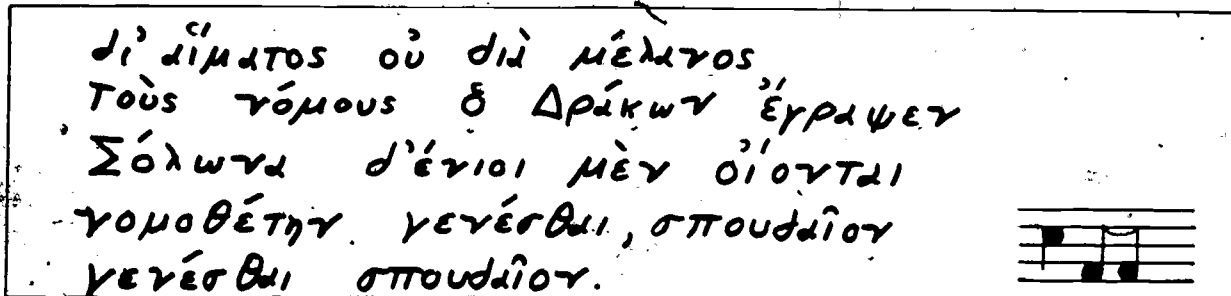 δι' αἵματος οὐ διὰ μέλανος
Τοὺς νόμους ὁ Δράκων ἔγραψεν
Σόλωνα δ' ἔνιοι μὲν οἴονται
νομοθέτην γενέσθαι, σπουδαῖον
γενέσθαι σπουδαῖον.